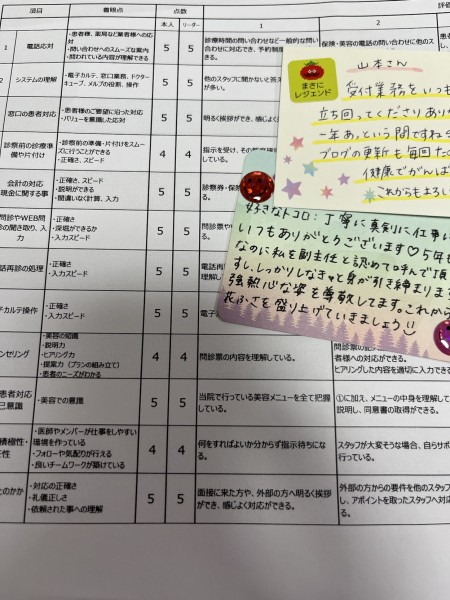 項目
着眼点
点数
評価
本人
リーダー
1
2
1
電話応対
・患者様、薬局など業者様への応対
・問い合わせへのスムーズな案内
・問われている内容が理解できる
5
5
診療時間の問い合わせなど一般的な問い
合わせに対応でき、予約制
保険・美容の電話の問い合わせに他のス
2
システムの理解
・電子カルテ、窓口業務、ドクターキューブ、メルプの役割、操作
5
5
他のスタッフに聞かないと答え
が多い。
窓口の患者対応
・患者様のご要望に沿った対応
・バリューを意識した応対
5
5
明るく挨拶ができ、感じよく
診察前の診療準
備や片付け
・診察前の準備・片付けをスムーズに行うことができる
・正確さ、スピード
4
4
指示を受け、
会計の対応
現金に関する事
・正確さ、スピード
・説明ができる
・間違いなく計算、入力
5
5
診察券・保険
問診やWEB問
診の聞き取り、入力
・正確さ
・深堀ができるか
・入力スピード
5
5
問診票や
電話再診の処理
・正確さ
・入力スピード
5
5
電話再
理解
カルテ操作
・正確さ
・入力スピード
5
5
電子
ンセリング
・美容の知識
・説明力
・ヒアリング力
・提案力（プランの組み立て）
・患者のニーズがわかる
4
4
問診票の内容を理解している。
問診票の記
者様への対応ができる。
ヒアリングした内容を適切に入力でき
患者対応
己意識
・美容での意識
5
5
当院で行っている美容メニューを全て把握
している。
①に加え、メニューの中身を理解して
説明し、同意書の取得ができる。
積極性・
任性
・医師やメンバーが仕事をしやすい環境を作っている
・フォローや気配りが行える
・良いチームワークが築けている
4
4
何をすればよいか分からず指示待ちにな
る。
スタッフが大変そうな場合、自らサポ
行っている。
とのかか
・対応の正確さ
・礼儀正しさ
・依頼された事への理解
5
5
面接に来た方や、外部の方へ明るく挨拶
ができ、感じよく対応ができる。
外部の方からの要件を他のスタッフ
し、アポイントを取ったスタッフへ対応
る。
まさに
レジェンド
山本さん
受付業務をいつも
立ち回ってくださりあり
一年あっという間ですね
ブログの更新も毎回
健康でがんば
これからもよろし
好きなトコロ：丁寧に真剣に仕事
いつもありがとうございます♡5年も
なのに私を副主任と認めて呼んで頂
すし、しっかりしなきゃと身が引き締まります
強熱心な姿を尊敬してます。これから
花ふさを盛り上げていきましょう